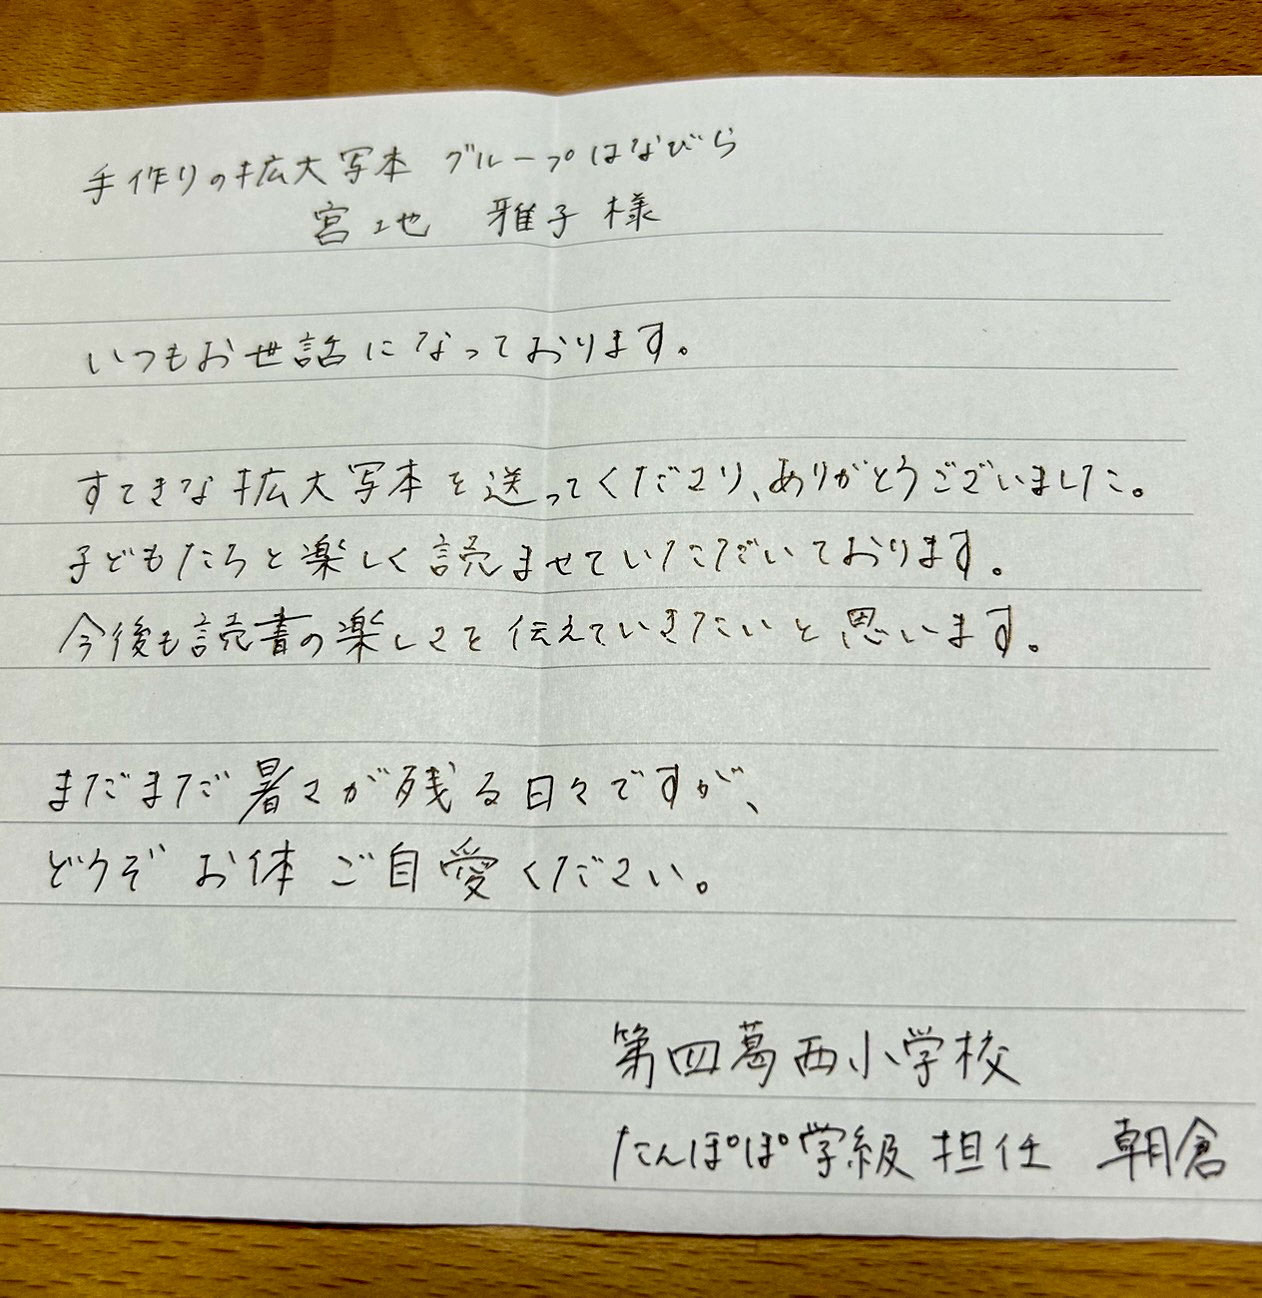 手作りの拡大写本 グループはなびら
宮地 雅子様
いつもお世話になっております。
すてきな拡大写本を送ってくださり、ありがとうございました。
子どもたちと楽しく読ませていただいております。
今後も読書の楽しさを伝えていきたいと思います。
まだまだ暑さが残る日々ですが、
どうぞ お体 ご自愛ください。
第四葛西小学校
たんぽぽ学級 担任 朝倉